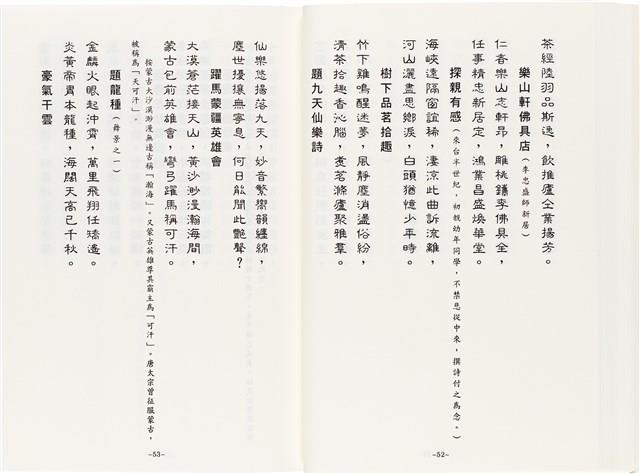 茶經陸羽品斯逸，飲推廬仝業揚芳。
樂山軒佛具店（李忠盛師新居）
仁者樂山志軒昂，雕桃鑴李佛具全，
任事精忠新居定，鴻業昌盛煥華堂。
探親有感（來台半世紀，初親幼年同學，不禁悲從中來，撰詩付之為念。）
海峽遠隔窗誼稀，淒涼此曲訴流離，
河山灑盡思鄉淚，白頭猶憶少年時。
樹下品茗拾趣
竹下雞鳴醒迷夢，風靜塵消盪俗紛，
清茶拾趣香沁腦，煮茗滌廬聚雅羣。
題九天仙樂詩
-52-
仙樂悠揚落九天，妙音繁嚮韻纏綿，
塵世擾攘無寧息，何日能聞此艷聲？
躍馬蒙疆英雄會
大漠蒼茫接天山，黃沙渺漫瀚海間，
蒙古包前英雄會，彎弓躍馬稱可汗。
按蒙古大沙漠渺漫無邊古稱「瀚海」。又蒙古英雄尊其霸主為「可汗」。唐太宗曾征服蒙古，
被稱為「天可汗」。
題龍種（舞景之一）
金鱗火眼起沖霄，萬里飛翔任矯遙。
炎黃帝冑本龍種，海闊天高已千秋。
豪氣干雲
-53-